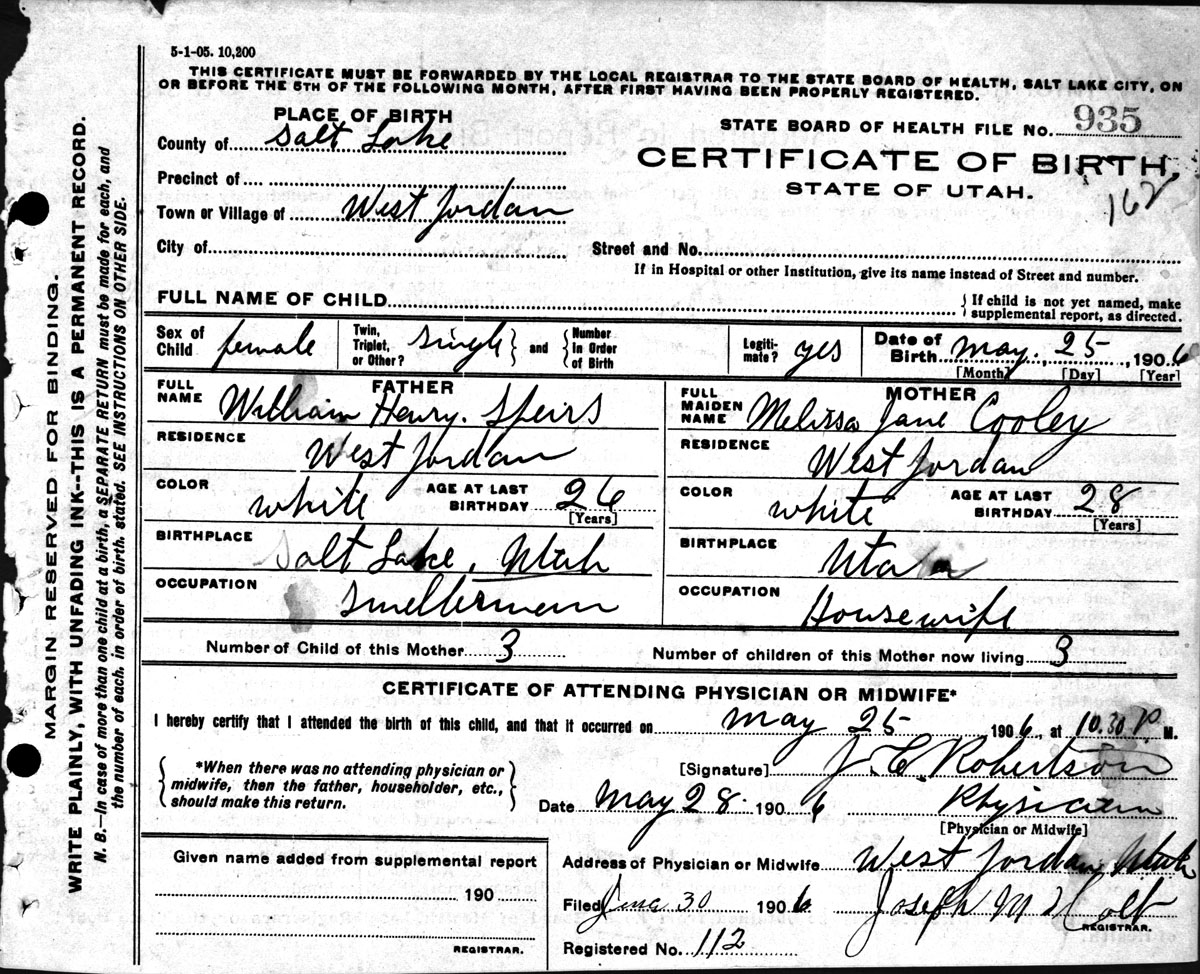 5-1-05. 10,200
THIS CERTIFICATE MUST BE FORWARDED BY THE LOCAL REGISTRAR TO THE STATE BOARD OF HEALTH, SALT LAKE CITY, ON
OR BEFORE THE 5TH OF THE FOLLOWING MONTH, AFTER FIRST HAVING BEEN PROPERLY REGISTERED.
PLACE OF BIRTH
STATE BOARD OF HEALTH FILE No. 935
County of Salt Lake
CERTIFICATE OF BIRTH.
Precinct of
STATE OF UTAH.
162
Town or Village of West Jordan
City of
Street and No.
If in Hospital or other Institution, give its name instead of Street and number.
FULL NAME OF CHILD
{If child is not yet named, make
supplemental report, as directed.
Sex of Child female
Twin, Triplet, or Other? single } and { Number In Order of Birth
Legitimate? yes
Date of Birth May 25, 1906
[Month] [Day] [Year]
FATHER
FULL NAME William Henry. Speirs
MOTHER
FULL MAIDEN NAME Melissa Jane Cooley
RESIDENCE West Jordan
RESIDENCE West Jordan
COLOR white AGE AT LAST BIRTHDAY 26 [Years]
COLOR white AGE AT LAST BIRTHDAY 28 [Years]
BIRTHPLACE Salt Lake, Utah
BIRTHPLACE Utah
OCCUPATION Smelterman
OCCUPATION Housewife
Number of Child of this Mother 3
Number of children of this Mother now living 3
CERTIFICATE OF ATTENDING PHYSICIAN OR MIDWIFE*
I hereby certify that I attended the birth of this child, and that it occurred on May 25 1906, at 10.30 P. M.
{ *When there was no attending physician or
midwife, then the father, householder, etc.,
should make this return. }
[Signature] J. C. Robertson
Date May 28. 1906 Physician
[Physician or Midwife]
Given name added from supplemental report
190
REGISTRAR.
Address of Physician or Midwife West Jordan, Utah
Filed June 30 1906 Joseph M Holt
REGISTRAR.
Registered No. 112
MARGIN RESERVED FOR BINDING.
WRITE PLAINLY, WITH UNFADING INK--THIS IS A PERMANENT RECORD.
N. B.—In case of more than one child at a birth, a SEPARATE RETURN must be made for each, and
the number of each, in order of birth, stated. SEE INSTRUCTIONS ON OTHER SIDE.